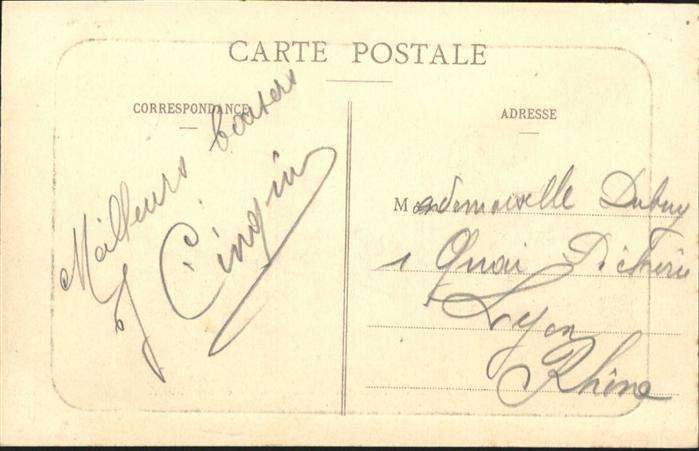 CARTE POSTALE
CORRESPONDANCE
Meilleurs baisers
ADRESSE
Mademoiselle Dubuy
1 Quai
Lyon
Rhône